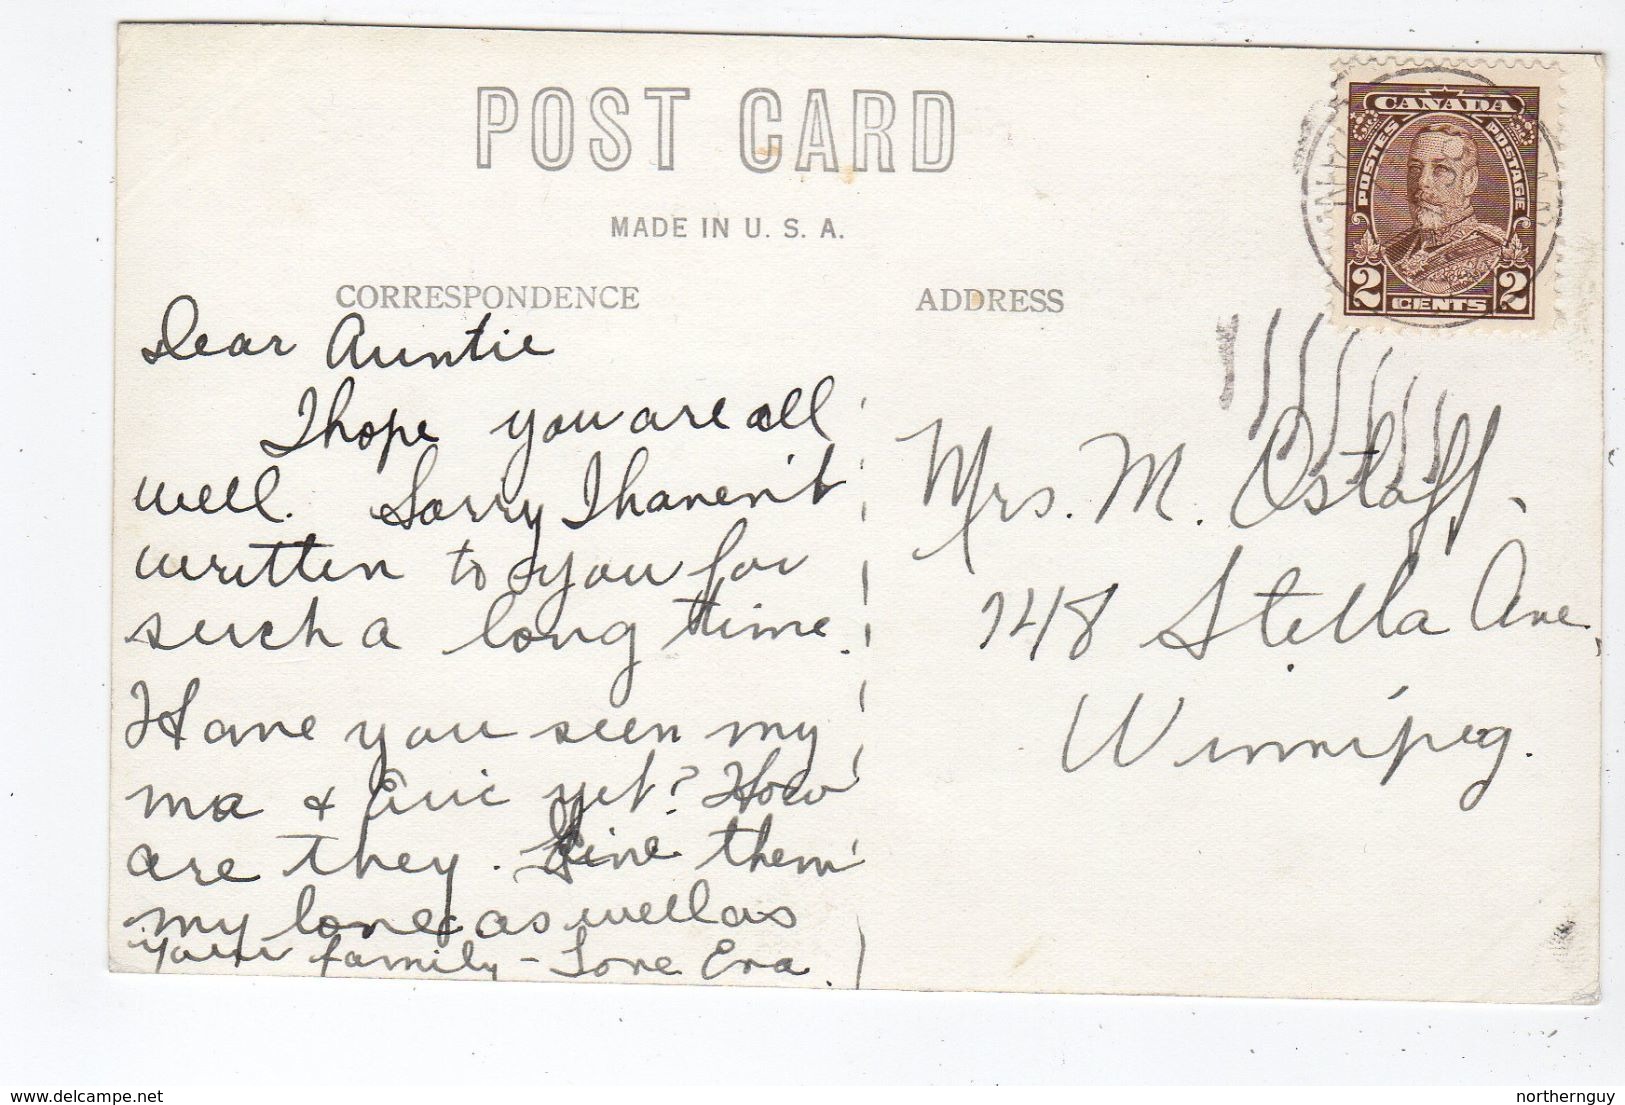 POST CARD
MADE IN U. S. A.
CORRESPONDENCE
Dear Auntie
I hope you are all
well. Sorry I haven't
written to you for
such a long time.
Have you seen my
ma & Evic yet? How
are they. Give them
my love as well as
your family - Love Eva.
ADDRESS
CANADA
POSTES POSTAGE
2 CENTS 2
Mrs. M. Ostaff,
748 Stella Ave.,
Winnipeg.
delcampe.net
northernguy